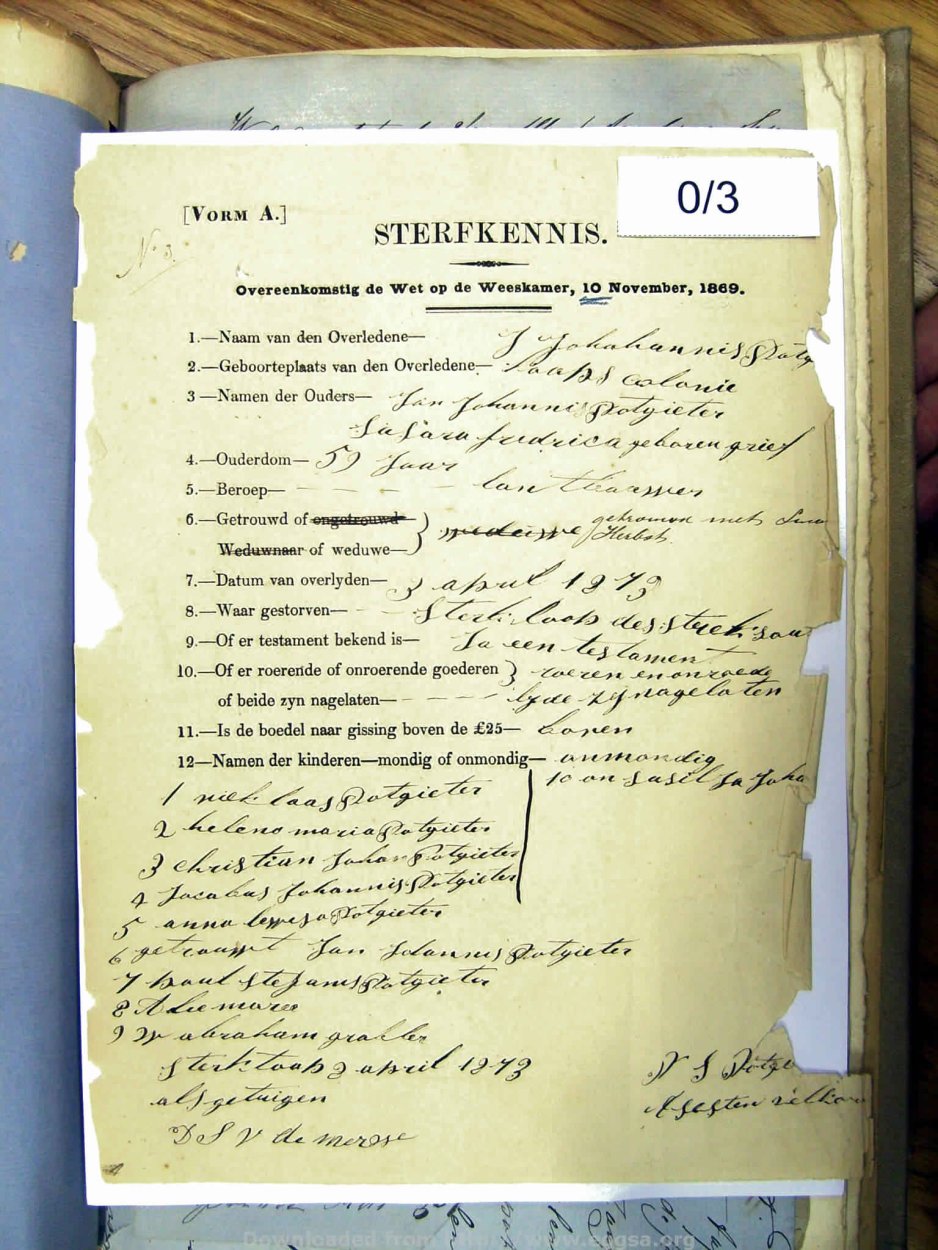 0/3
[VORM A.]
No 3.
STERFKENNIS.
Overeenkomstig de Wet op de Weeskamer, 10 November, 1869.
1.—Naam van den Overledene— J Johahannis Potg
2.—Geboorteplaats van den Overledene— kaaps colonie
3—Namen der Ouders— Jan Johannis Potgieter
Sara fredrica geboren grief
4.—Ouderdom— 59 Jaar
5.—Beroep— lantbouwer
6.—Getrouwd of ongetrouwd— getrouwd met
Weduwnaar of weduwe— weduwe Herbst
7.—Datum van overlyden— 3 april 1873
8.—Waar gestorven— Sterkloop
9.—Of er testament bekend is— Ja een testament
10.—Of er roerende of onroerende goederen roeren en onroede
of beide zyn nagelaten— byde zyn nagelaten
11.—Is de boedel naar gissing boven de £25— boven
12—Namen der kinderen—mondig of onmondig— onmondig
10 an
1 nicklaas Potgieter
2 helena maria Potgieter
3 christian Johan Potgieter
4 Jacobus Johannis Potgieter
5 anna Potgieter
6 getrouwt Jan Johannis Potgieter
7 paul stefanus Potgieter
8
9 abraham
Sterkloop 3 april 1873
P J Potgi
als getuigen
D S V de
Downloaded from http://www.eggsa.org